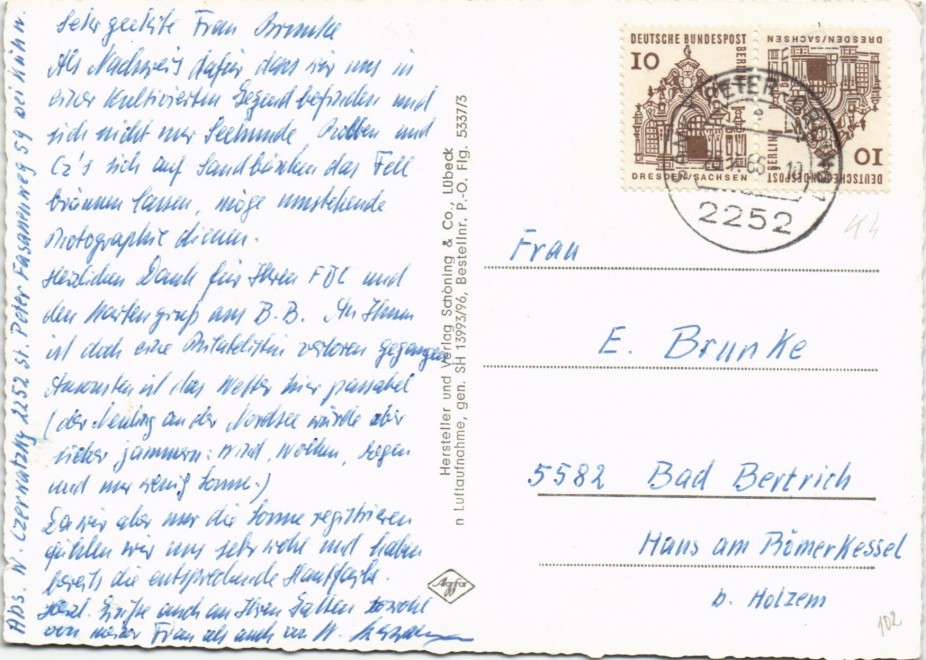 Sehr geehrte Frau Brunke
Als Nachweis dafür dass wir uns in
einer kultivierten Gegend befinden und
sich nicht nur Seehunde Robben und
Cz's sich auf Sandbänken das Fell
bräunen lassen, möge umstehende
Photographie dienen.
Herzlichen Dank für Ihren FDC und
den Kartengruß aus B. B. An Ihnen
ist doch eine Philatelistin verloren gegangen
Ansonsten ist das Wetter hier passabel
(der Neuling an der Nordsee würde aber
sicher jammern: Wind, Wolken, Regen
und nur wenig Sonne.)
Da wir aber nur die Sonne registrieren
fühlen wir uns sehr wohl und haben
bereits die entsprechende Hautfarbe.
Herzl. Grüße auch an Ihren Gatten sowohl
von meiner Frau als auch von W.
Abs. W. Czernatzky 2252 St. Peter Fasanenweg 59 bei Kühn.
Hersteller und Verlag Schöning & Co., Lübeck
n Luftaufnahme, gen. SH 13993/96, Bestellnr. P.-O. Flg. 5337/3
Agfa
DEUTSCHE BUNDESPOST
BERLIN
10
DRESDEN/SACHSEN
DEUTSCHE BUNDESPOST
BERLIN
10
DRESDEN/SACHSEN
PETER-ORDING
2252
Frau
E. Brunke
5582 Bad Bertrich
Haus am Römerkessel
b. Holzem
102